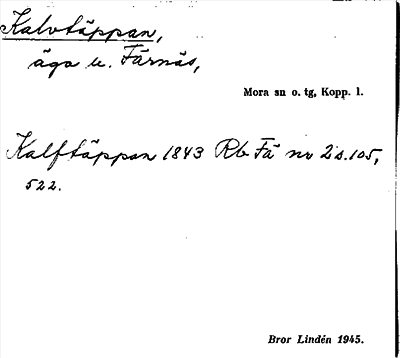 Kalvtäppan,
äga u. Färnäs,
Mora sn o. tg, Kopp. l.
Kalftäppan 1843 Rb Fä nr 2 s. 105,
522.
Bror Lindén 1945.